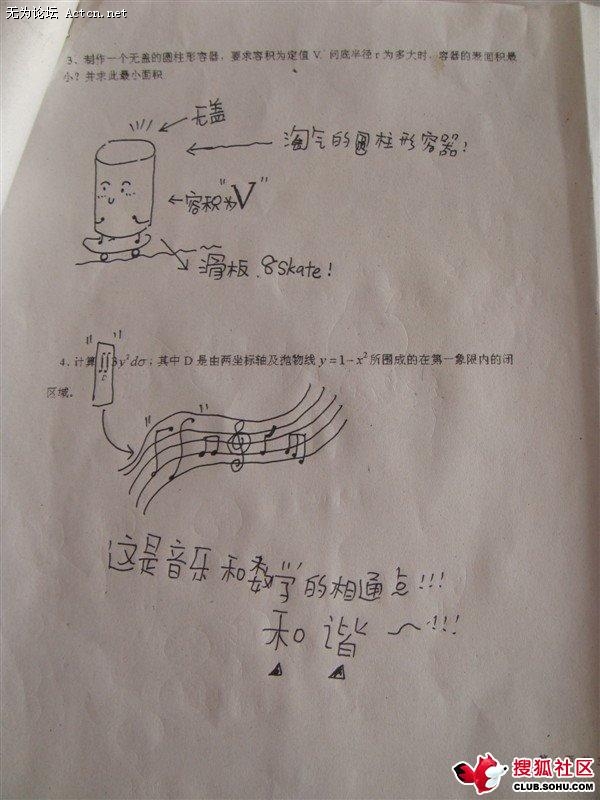 无为论坛 Actcn.net
3、制作一个无盖的圆柱形容器，要求容积为定值 V，问底半径 r 为多大时，容器的表面积最
小？并求此最小面积.
无盖
淘气的圆柱形容器！
容积为"V"
滑板.Skate！
4、计算∬3y²dσ；其中 D 是由两坐标轴及抛物线 y=1-x² 所围成的在第一象限内的闭
D
区域。
这是音乐和"数学"的相通点!!!
和谐～!!!
搜狐社区
CLUB.SOHU.COM